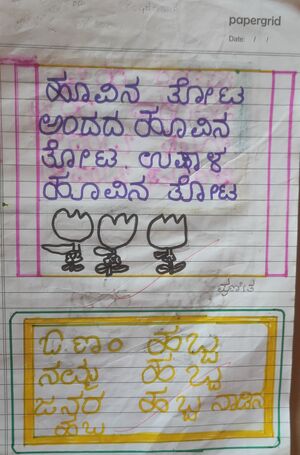 papergrid
Date: / /
ಹೂವಿನ ತೋಟ
ಅಂದದ ಹೂವಿನ
ತೋಟ ಉಷಾಳ
ಹೂವಿನ ತೋಟ
ದಿಣಂ ಹಬ್ಬ
ನಮ್ಮ ಹಬ್ಬ
ಜನರ ಹಬ್ಬ ನಾಡಿನ
ಹಬ